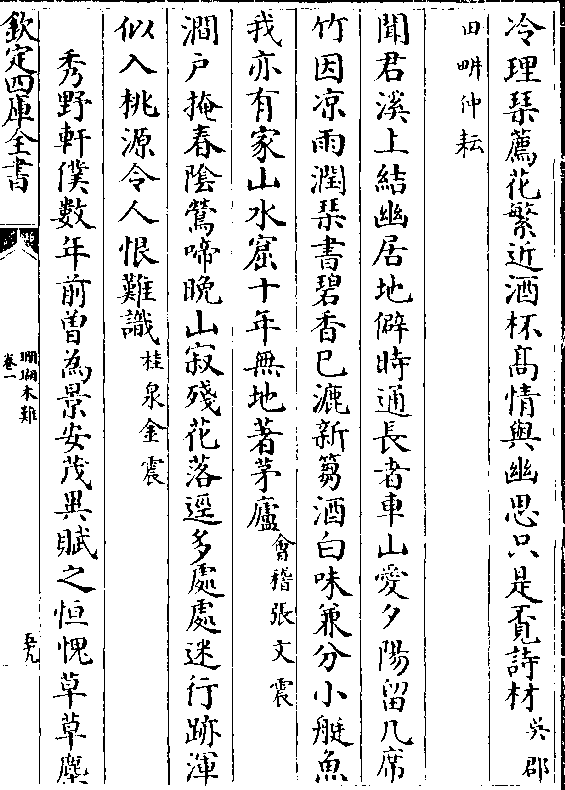 冷理琹薦花繁近酒杯髙情與幽思只是覔詩材吳郡
田畊仲耘
聞君溪上結幽居地僻時通長者車山愛夕陽留几席
竹因凉雨潤琹書碧香已漉新篘酒白味兼分小艇魚
我亦有家山水窟十年無地著茅廬會稽張文震
澗户掩春陰鶯啼晩山寂殘花落逕多處處迷行跡渾
似入桃源令人恨難識桂泉金震
秀野軒僕數年前曽為景安茂異賦之恒愧草草塵
欽定四庫全書
珊瑚木難
卷一